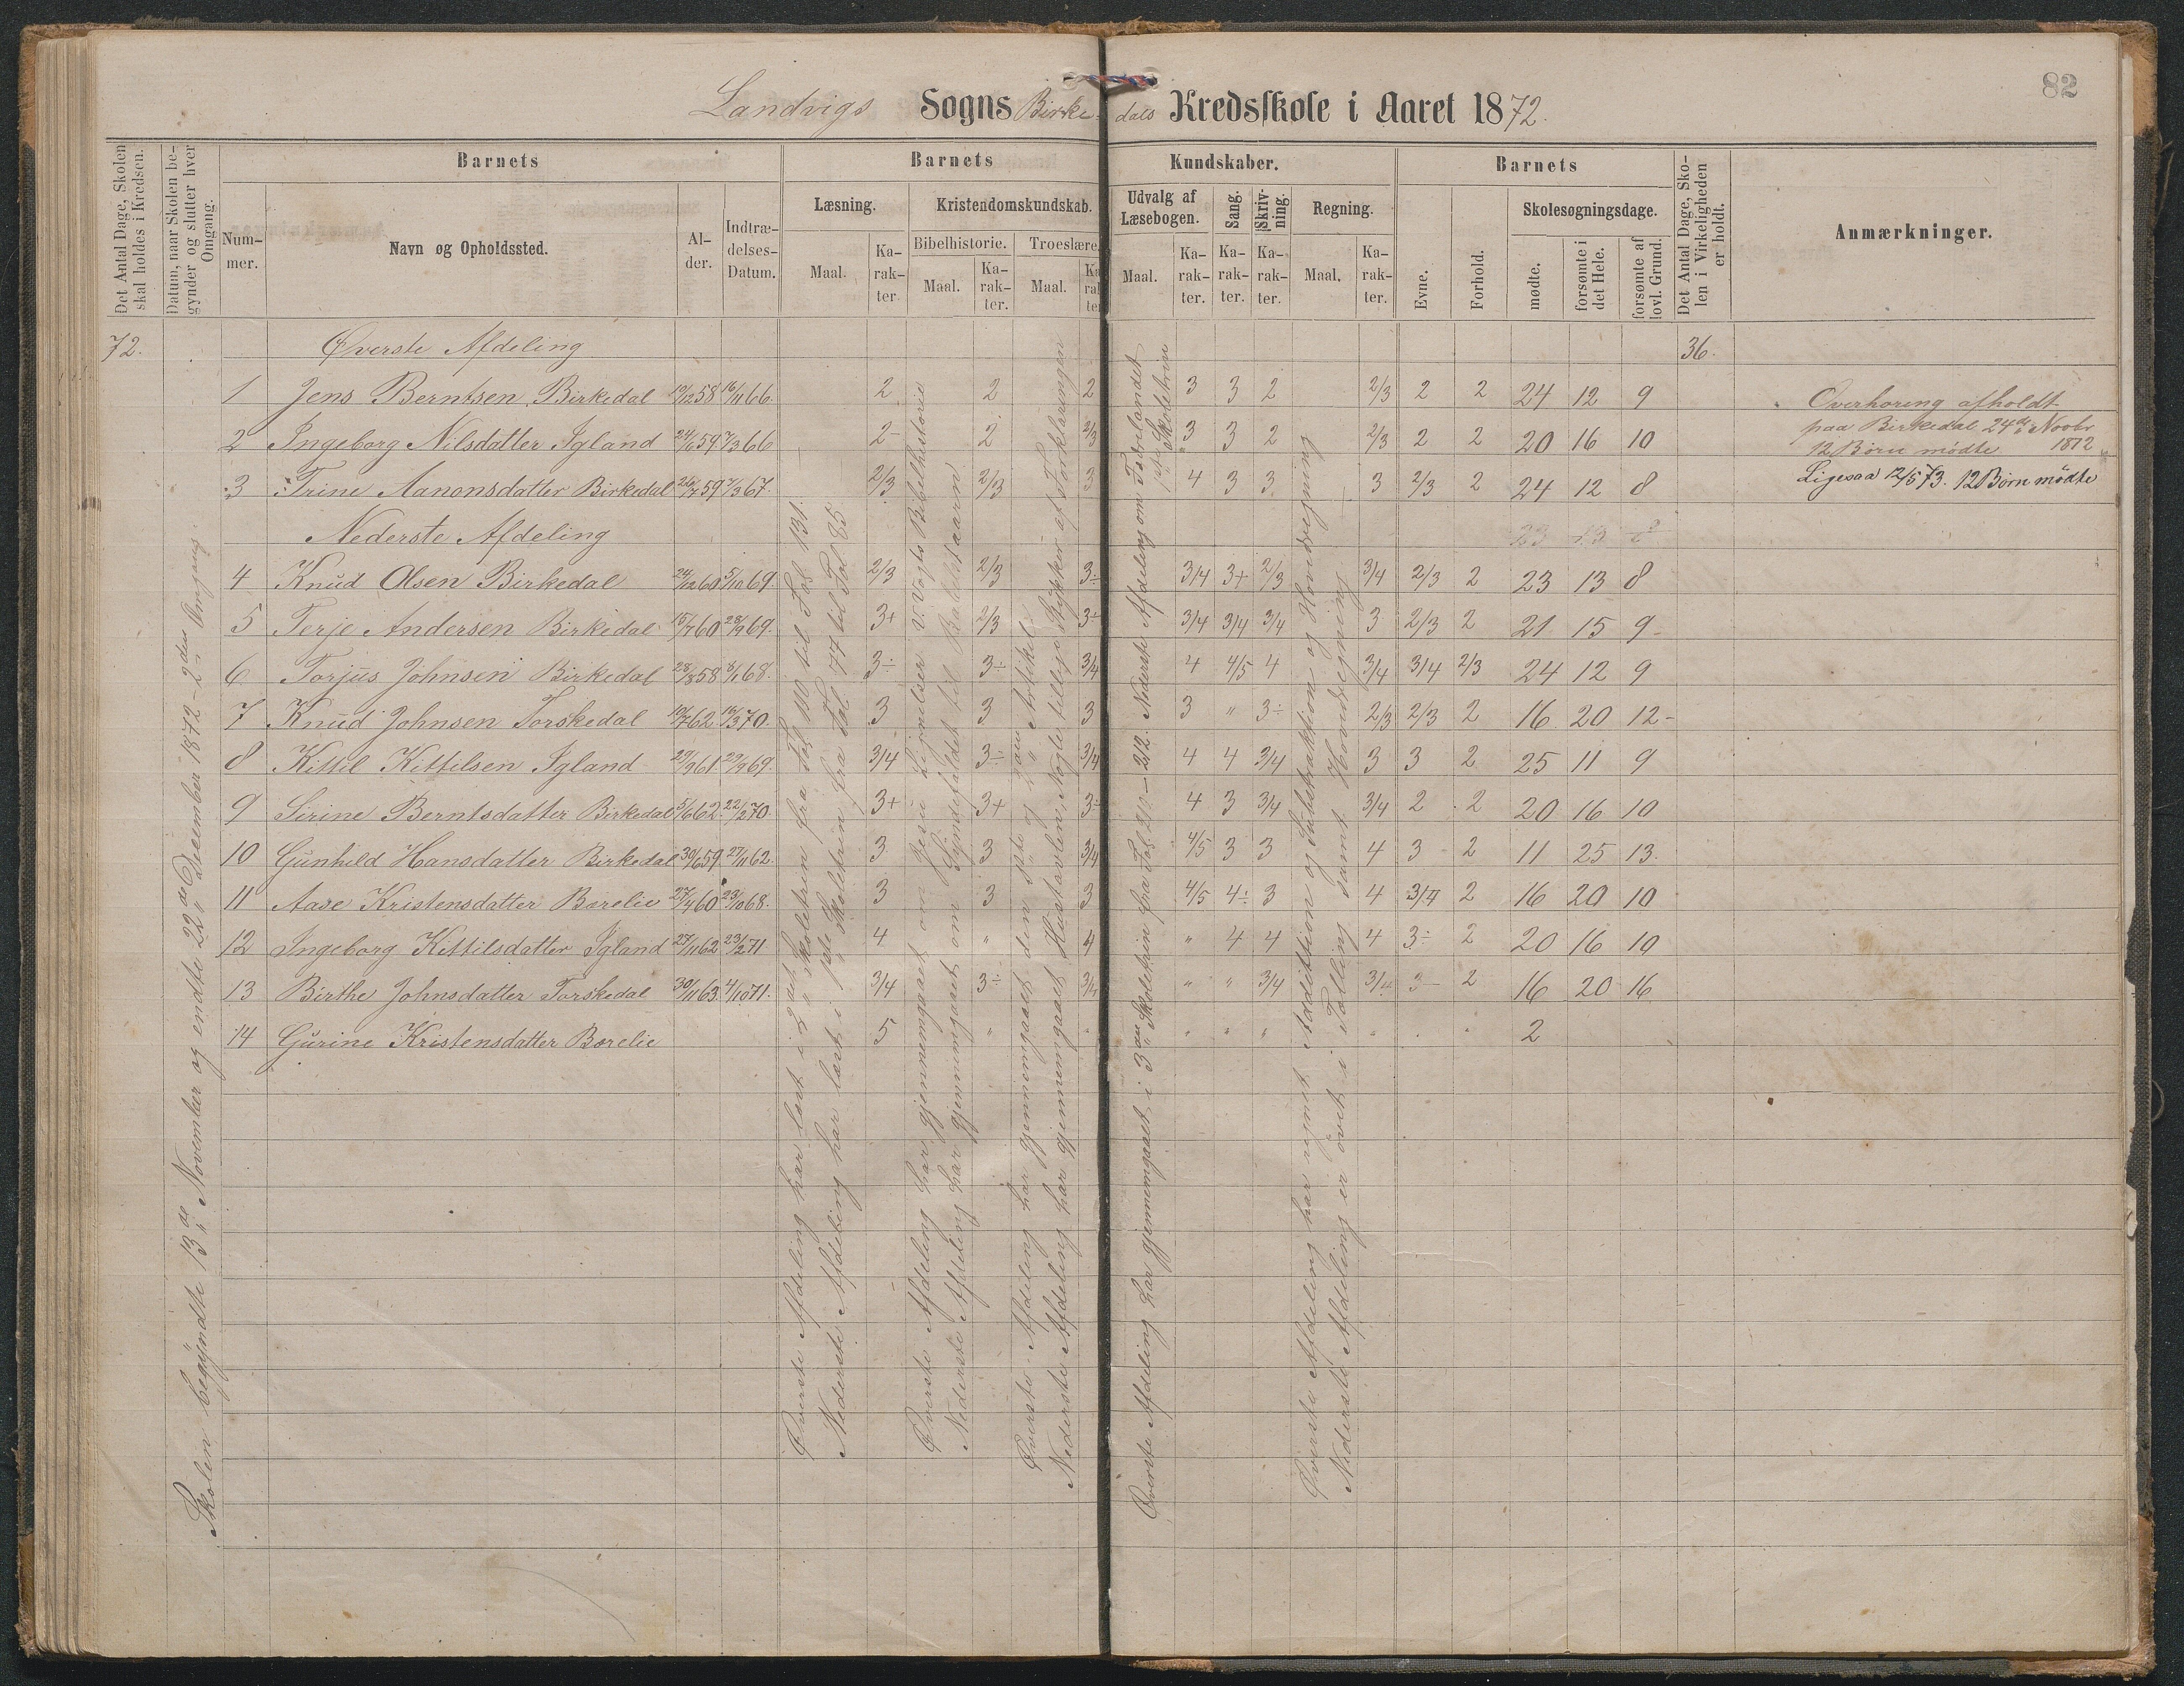 82
Landvigs Sogns Birke- dals Kredsskole i Aaret 1872.
Det Antal Dage, Skolen skal holdes i Kredsen.
Datum, naar Skolen begynder og slutter hver Omgang.
Barnets
Barnets
Kundskaber.
Barnets
Det Antal Dage, Skolen i Virkeligheden er holdt.
Anmærkninger.
Nummer.
Navn og Opholdssted.
Alder.
Indtrædelses-Datum.
Læsning.
Kristendomskundskab.
Udvalg af Læsebogen.
Sang.
Skrivning.
Regning.
Evne.
Forhold.
Skolesøgningsdage.
Bibelhistorie.
Troeslære.
Maal.
Karakter
Maal.
Karakter.
Maal.
Karakter
Maal.
Karakter.
Karakter.
Karakter.
Maal.
Karakter.
mødte.
forsømte i det Hele.
forsømte af lovl. Grund.
72. Øverste Afdeling 36.
1 Jens Berntsen Birkedal 19/12 58 16/11 66. 2 2 2 3 3 2 2/3 2 2 24 12 9
2 Ingeborg Nilsdatter Igland 24/6 59 7/3 66 2- 2 2/3 3 3 2 2/3 2 2 20 16 10
3 Trine Aanonsdatter Birkedal 26/7 59 7/3 67. 2/3 2/3 3 4 3 3 3 2/3 2 24 12 8
Nederste Afdeling 23 13 8
4 Knud Olsen Birkedal 24/12 60 5/10 69. 2/3 2/3 3÷ 3/4 3+ 2/3 3/4 2/3 2 23 13 8
5 Terje Andersen Birkedal 15/7 60 28/9 69. 3+ 2/3 3÷ 3/4 3/4 3/4 3 2/3 2 21 15 9
6 Torjus Johnsen Birkedal 28/8 58 8/1 68. 3÷ 3÷ 3/4 4 4/5 4 3/4 3/4 2/3 24 12 9
7 Knud Johnsen Torskedal 10/7 62. 16/3 70. 3 3 3 3 " 3÷ 2/3 2/3 2 16 20 12
8 Kittil Kittilsen Igland 29/9 61 29/9 69. 3/4 3÷ 3/4 4 4 3/4 3 3 2 25 11 9
9 Sirine Berntsdatter Birkedal 5/6 62. 22/2 70. 3+ 3+ 3÷ 4 3 3/4 3/4 2 2 20 16 10
10 Gunhild Hansdatter Birkedal 30/6 59 27/11 62. 3 3 3/4 4/5 3 3 4 3 2 11 25 13.
11 Aase Kristensdatter Borelie 27/4 60 23/10 68. 3 3 3 4/5 4÷ 3 4 3/4 2 16 20 10
12 Ingeborg Kittilsdatter Igland 27/11 62 23/2 71 4 " 4 " 4 4 4 3÷ 2 20 16 10
13 Birthe Johnsdatter Torskedal 30/11 63 4/10 71. 3/4 3÷ 3/4 " " 3/4 3/4 3 2 16 20 16
14 Gurine Kristensdatter Borelie 5 " " " " " " 2
Overhøring afholdt
paa Birkedal 24de Novbr
12 Børn mødte 1872
Ligesaa 12/5 73. 12 Børn mødte
Skolen begyndte 13de November og endte 22de Desember 1872 - 2den Omgang
Øverste Afdeling har læst i 2det Skoletrin fra Fol 110 til Fol 131.
Nederste Afdeling har læst i 1ste Skoletrin fra Fol 74 til Fol 85
Øverste Afdeling har gjennemgaaet om Jesu Lignelser i Vogts Bibelhistorie
Nederste Afdeling har gjennemgaaet om Syndefaldet til Babelstaarn
Øverste Afdeling har gjennemgaaet den 1ste og 2den Artikel
Nederste Afdeling har gjennemgaaet Hustavlen, Nogle tillige Stykker af Forklaringen
Øverste Afdeling har gjennemgaaet i 3die Skoletrin fra Fol. 210 - 212. Nederste Afdeling om Fædrelandet
1ste Skoletrin
Øverste Afdeling har regnet Addittion og Subtraktion og Hovedregning
Nederste Afdeling er øvet i Tælling samt Hovedregning